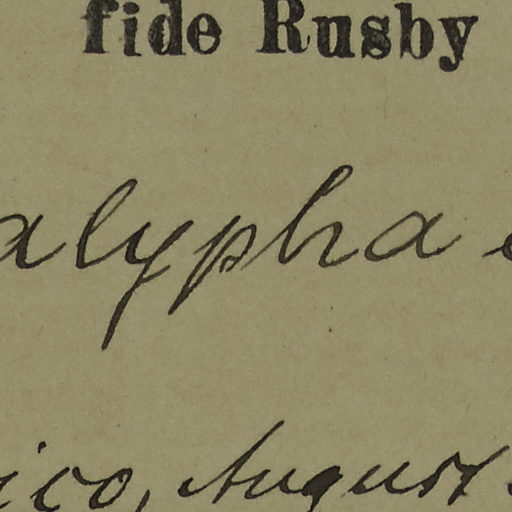 fide Rusby
alypha
ico, August